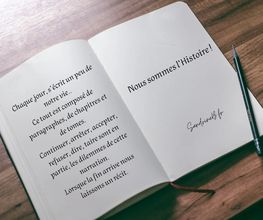 Chaque jour, s'écrit un peu de
notre vie..
Ce tout est composé de
paragraphes, de chapitres et
de tomes.
Continuer, arrêter, accepter,
refuser, dire, taire sont en
partie, les dilemmes de cette
narration.
Lorsque la fin arrive nous
laissons un récit.
Nous sommes l'Histoire !